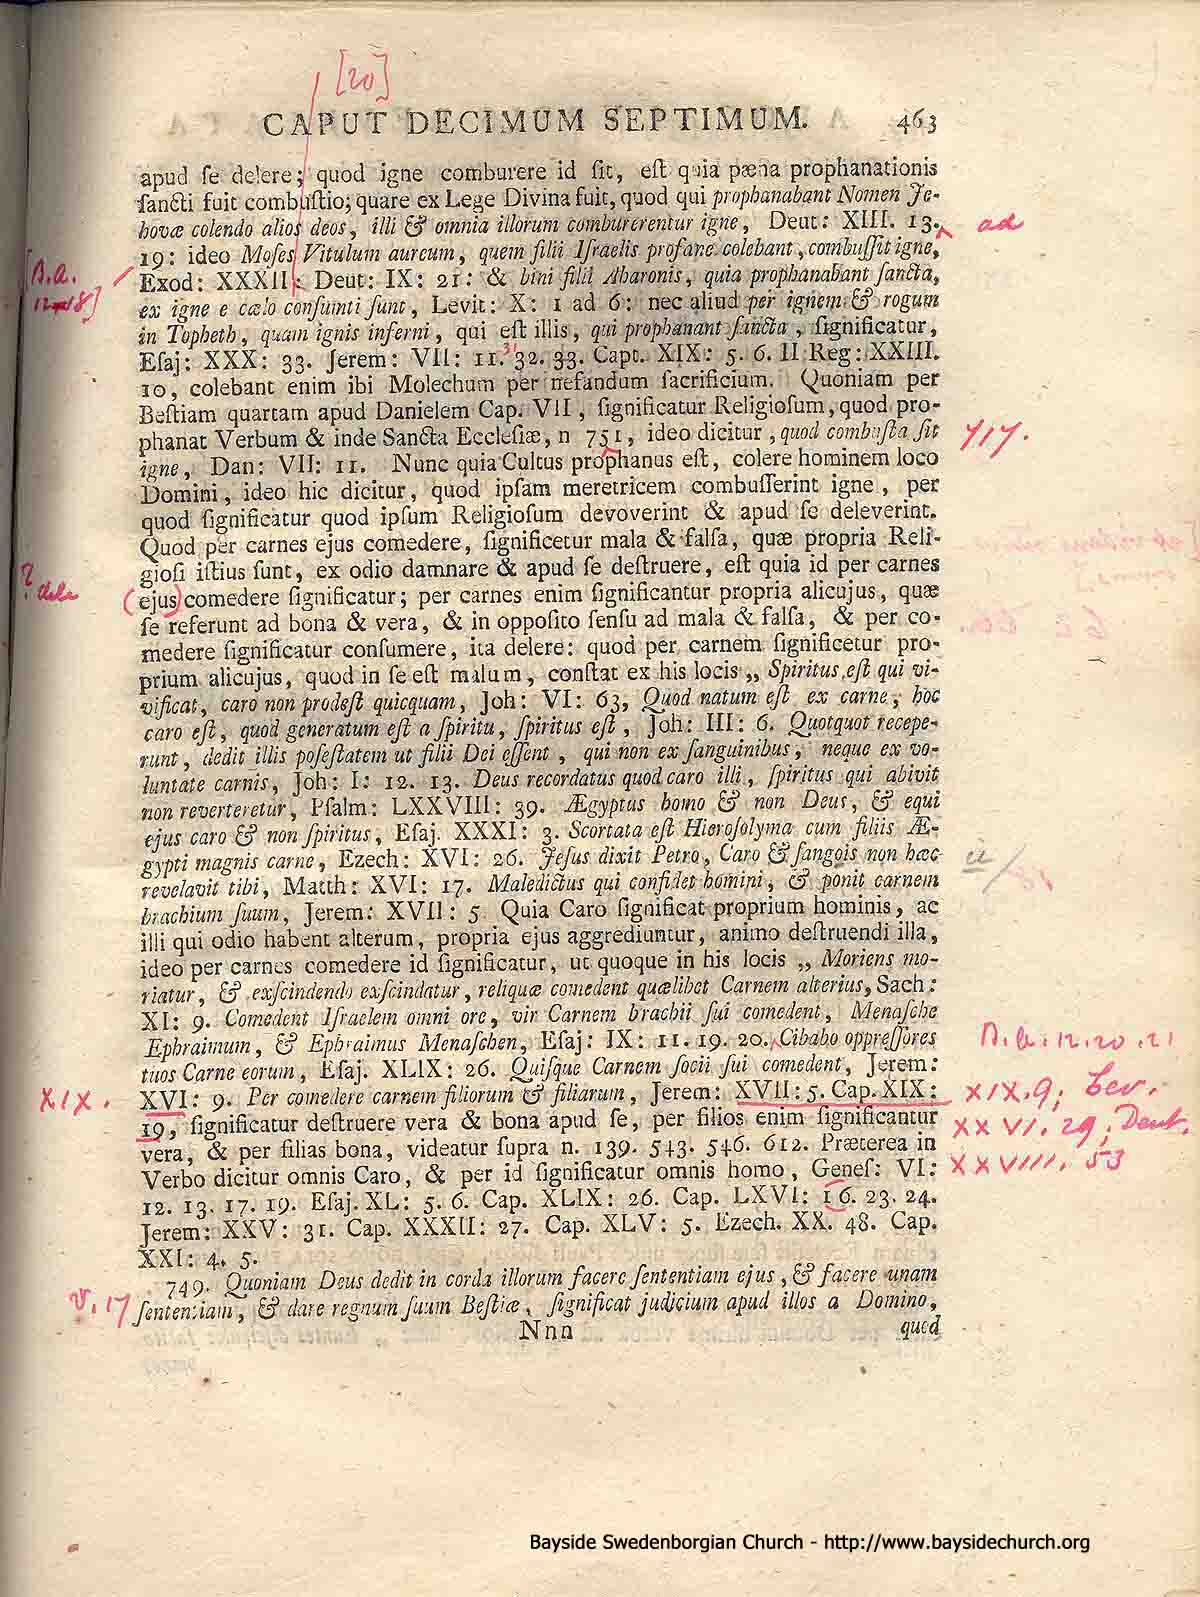 [20]
CAPUT DECIMUM SEPTIMUM. 463
apud ſe delere; quod igne comburere id ſit, eſt quia pæna prophanationis
ſancti fuit combuſtio; quare ex Lege Divina fuit, quod qui prophanabant Nomen Je-
hovæ colendo alios deos, illi & omnia illorum comburerentur igne, Deut: XIII. 13. ad
19: ideo Moſes Vitulum aureum, quem filii Iſraelis profane colebant, combuſſit igne,
Exod: XXXII: Deut: IX: 21: & bini filii Aharonis, quia prophanabant ſancta,
ex igne e cælo conſumti ſunt, Levit: X: 1 ad 6: nec aliud per ignem & rogum
in Topheth, quam ignis inferni, qui eſt illis, qui prophanant ſancta, ſignificatur,
Eſaj: XXX: 33. Jerem: VII: 11. 31 32. 33. Capt. XIX: 5. 6. II Reg: XXIII.
10, colebant enim ibi Molechum per nefandum ſacrificium. Quoniam per
Beſtiam quartam apud Danielem Cap. VII, ſignificatur Religioſum, quod pro-
phanat Verbum & inde Sancta Eccleſiæ, n 751, ideo dicitur, quod combuſta ſit 717.
igne, Dan: VII: 11. Nunc quia Cultus prophanus eſt, colere hominem loco
Domini, ideo hic dicitur, quod ipſam meretricem combuſſerint igne, per
quod ſignificatur quod ipſum Religioſum devoverint & apud ſe deleverint.
Quod per carnes ejus comedere, ſignificetur mala & falſa, quæ propria Reli-
gioſi iſtius ſunt, ex odio damnare & apud ſe deſtruere, eſt quia id per carnes
? dele (ejus) comedere ſignificatur; per carnes enim ſignificantur propria alicujus, quæ
ſe referunt ad bona & vera, & in oppoſito ſenſu ad mala & falſa, & per co-
medere ſignificatur conſumere, ita delere: quod per carnem ſignificetur pro-
prium alicujus, quod in ſe eſt malum, conſtat ex his locis „ Spiritus eſt qui vi-
vificat, caro non prodeſt quicquam, Joh: VI: 63, Quod natum eſt ex carne, hoc
caro eſt, quod generatum eſt a ſpiritu, ſpiritus eſt, Joh: III: 6. Quotquot recepe-
runt, dedit illis poſeſtatem ut filii Dei eſſent, qui non ex ſanguinibus, neque ex vo-
luntate carnis, Joh: I: 12. 13. Deus recordatus quod caro illi, ſpiritus qui abivit
non reverteretur, Pſalm: LXXVIII: 39. Ægyptus homo & non Deus, & equi
ejus caro & non ſpiritus, Eſaj. XXXI: 3. Scortata eſt Hieroſolyma cum filiis Æ-
gypti magnis carne, Ezech: XVI: 26. Jeſus dixit Petro, Caro & ſangois non hæc u/
revelavit tibi, Matth: XVI: 17. Maledictus qui confidet homini, & ponit carnem
brachium ſuum, Jerem: XVII: 5. Quia Caro ſignificat proprium hominis, ac
illi qui odio habent alterum, propria ejus aggrediuntur, animo deſtruendi illa,
ideo per carnes comedere id ſignificatur, ut quoque in his locis „ Moriens mo-
riatur, & exſcindendo exſcindatur, reliquæ comedent quælibet Carnem alterius, Sach:
XI: 9. Comedent Iſraelem omni ore, vir Carnem brachii ſui comedent, Menaſche
Ephraimum, & Ephraimus Menaſchen, Eſaj: IX: 11. 19. 20. Cibabo oppreſſores
tuos Carne eorum, Eſaj. XLIX: 26. Quiſque Carnem ſocii ſui comedent, Jerem:
XIX. XVI: 9. Per comedere carnem filiorum & filiarum, Jerem: XVII: 5. Cap. XIX: XIX. 9; Lev.
19, ſignificatur deſtruere vera & bona apud ſe, per filios enim ſignificantur XXVI. 29; Deut.
vera, & per filias bona, videatur ſupra n. 139. 543. 546. 612. Præterea in XXVIII. 53
Verbo dicitur omnis Caro, & per id ſignificatur omnis homo, Geneſ: VI:
12. 13. 17. 19. Eſaj. XL: 5. 6. Cap. XLIX: 26. Cap. LXVI: 16. 23. 24.
Jerem: XXV: 31. Cap. XXXII: 27. Cap. XLV: 5. Ezech. XX. 48. Cap.
XXI: 4. 5.
749. Quoniam Deus dedit in corda illorum facere ſententiam ejus, & facere unam
v. 17 ſententiam, & dare regnum ſuum Beſtiæ, ſignificat judicium apud illos a Domino,
Nnn quod
Bayside Swedenborgian Church - http://www.baysidechurch.org